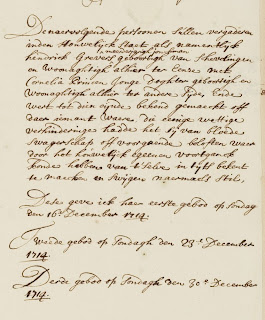 De naervolgende persoonen sullen vergaderen
inden Houwelijck staet als namentlijck
hendrick Gravers geboortigh van Schevelingen
en woonaghtigh alhier ter eenre met
Cornelia Jonge Doghter geboortigh en
woonaghtigh alhier ter andre sijde Ende
wert tot dien eynde bekent gemaeckt off
daer iemant waere die eenige wettige
verhinderinge hadde het sij van bloede
Swagerschap off voorgaende beloften waer
door het houwelijck geenen voortganck
konde hebben van 't selve in tijts bekent
te maecken en swijgen naermaels stil
Dese geve ick haer eerste gebod op sondag
den 16e December 1714.
Tweede gebod op Sondagh den 23e December
1714.
Derde gebod op Sondagh den 30e December
1714.